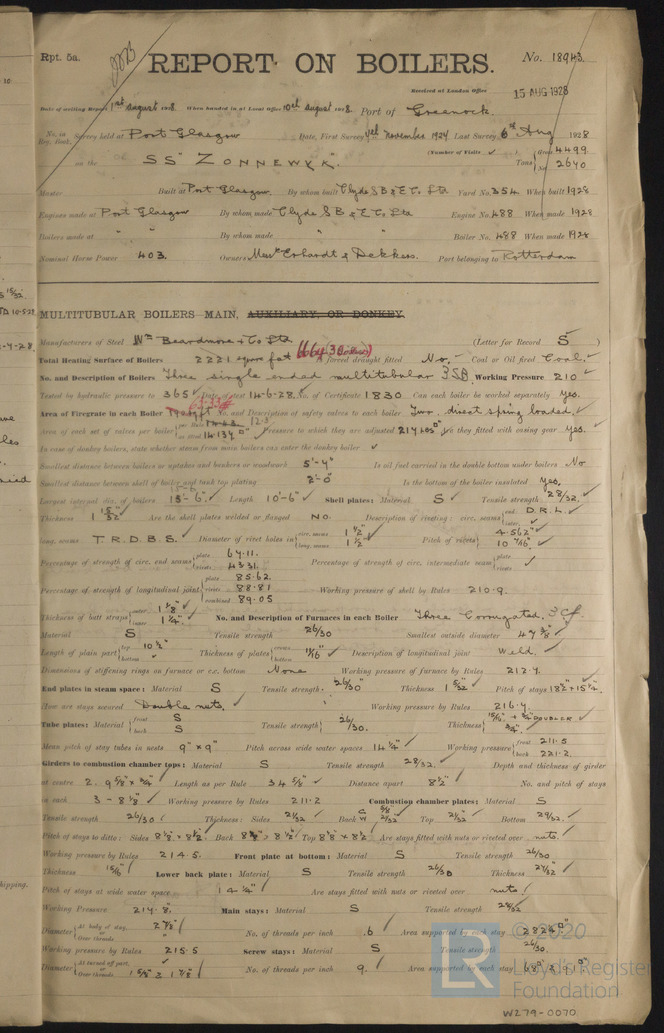 Rpt. 5a.
REPORT ON BOILERS.
No. 18943.
Received at London Office 15 AUG 1928
Date of writing Report 1st August 1928. When handed in at Local Office 10th August 1928. Port of Greenock.
No. in Reg. Book. Survey held at Port Glasgow Date, First Survey Last Survey 6th Aug 1928
(Number of Visits ✓ ) Gross 4499
on the SS "ZONNEWYK". Tons Net 2640
Master Built at Port Glasgow By whom built Clyde S B & E Co Ltd Yard No. 354 When built 1928
Engines made at Port Glasgow By whom made Clyde S B & E Co Ltd Engine No. 488 When made 1928
Boilers made at " " By whom made " " Boiler No. 488 When made 1928
Nominal Horse Power 403. Owners Messrs Erhardt & Dekkers. Port belonging to Rotterdam
MULTITUBULAR BOILERS MAIN, AUXILIARY, OR DONKEY.
Manufacturers of Steel Wm Beardmore & Co Ltd (Letter for Record S )
Total Heating Surface of Boilers 2221 6664 Forced draught fitted No. Coal or Oil fired Coal.
No. and Description of Boilers Three single ended multitubular 3SB Working Pressure 210
Tested by hydraulic pressure to 365 Date of test 14-6-28. No. of Certificate 1830 Can each boiler be worked separately Yes.
Area of Firegrate in each Boiler No. and Description of safety valves to each boiler Two direct spring loaded.
Area of each set of valves per boiler per Rule as fitted Pressure to which they are adjusted Are they fitted with easing gear Yes.
In case of donkey boilers, state whether steam from main boilers can enter the donkey boiler ✓
Smallest distance between boilers or uptakes and bunkers or woodwork 5'-4" Is oil fuel carried in the double bottom under boilers No
Smallest distance between shell of boiler and tank top plating 2'-0" Is the bottom of the boiler insulated Yes.
Largest internal dia. of boilers 15'-6" Length 10'-6" Shell plates: Material S Tensile strength 28/32.
Thickness 1 15/32" Are the shell plates welded or flanged No. Description of riveting: circ. seams end D.R.L. inter.
long. seams T.R.D.B.S. Diameter of rivet holes in circ. seams 1 1/2" long. seams 1 1/2" Pitch of rivets 4.562" 10 7/16"
Percentage of strength of circ. end seams plate 67.11. rivets 43.31 Percentage of strength of circ. intermediate seam plate rivets ✓
Percentage of strength of longitudinal joint plate 85.62 rivets 88.81 combined 89.05 Working pressure of shell by Rules 210.9.
Thickness of butt straps outer 1 1/8" inner 1 1/4" No. and Description of Furnaces in each Boiler Three Corrugated. 3 Cf.
Material S Tensile strength 26/30 Smallest outside diameter 47 3/8"
Length of plain part top 10 1/2" bottom Thickness of plates crown bottom 11/16" Description of longitudinal joint Weld.
Dimensions of stiffening rings on furnace or c.c. bottom None Working pressure of furnace by Rules 212.7.
End plates in steam space: Material S Tensile strength 26/30 Thickness 1 5/32" Pitch of stays
How are stays secured Double nuts. Working pressure by Rules 216.7.
Tube plates: Material front S back S Tensile strength 26/30. Thickness DOUBLER 3/4"
Mean pitch of stay tubes in nests 9" x 9" Pitch across wide water spaces 14 1/4" Working pressure front 211.5 back 221.2.
Girders to combustion chamber tops: Material S Tensile strength 28/32. Depth and thickness of girder
at centre 2. 9 5/8" x 3/4" Length as per Rule 34 5/8" Distance apart 8 1/2" No. and pitch of stays
in each 3 - 8 1/8" Working pressure by Rules 211.2 Combustion chamber plates: Material S
Tensile strength 26/30 Thickness: Sides 21/32 Back Top 21/32" Bottom 29/32.
Pitch of stays to ditto: Sides 8 1/8" x 8 1/2" Back Top 8 1/8" x 8 1/2 Are stays fitted with nuts or riveted over nuts.
Working pressure by Rules 214.5. Front plate at bottom: Material S Tensile strength 26/30
Thickness 15/16" Lower back plate: Material S Tensile strength 26/30 Thickness 27/32"
Pitch of stays at wide water space 14 1/4" Are stays fitted with nuts or riveted over nuts
Working Pressure 217.8. Main stays: Material S Tensile strength 28/32
Diameter At body of stay, Over threads 2 7/8" No. of threads per inch .6 Area supported by each stay
Working pressure by Rules 215.5 Screw stays: Material S Tensile strength 26/30.
Diameter At turned off part, Over threads 1 5/8" & 1 7/8" No. of threads per inch 9. Area supported by each stay
© 2020
LR Lloyd's Register Foundation
W279-0070